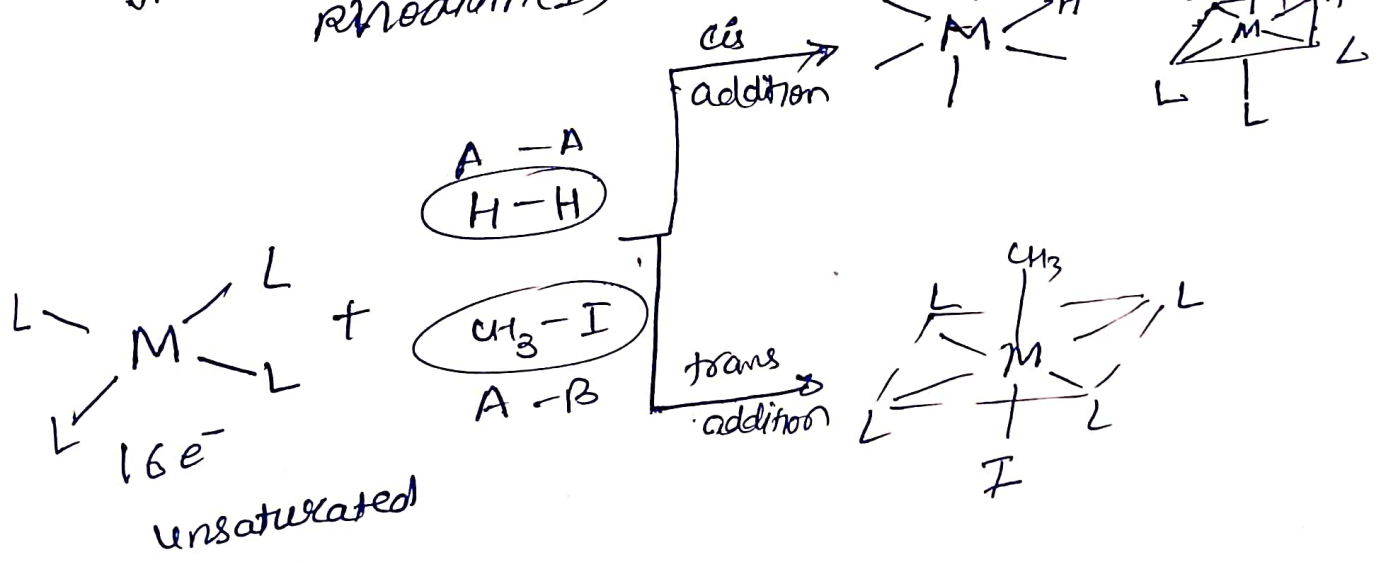 cis
addition
M
H
M
L
L
L
A - A
H - H
L
L
M
L
L
+
CH3 - I
A - B
trans
addition
CH3
L
L
M
L
L
I
16e-
unsaturated